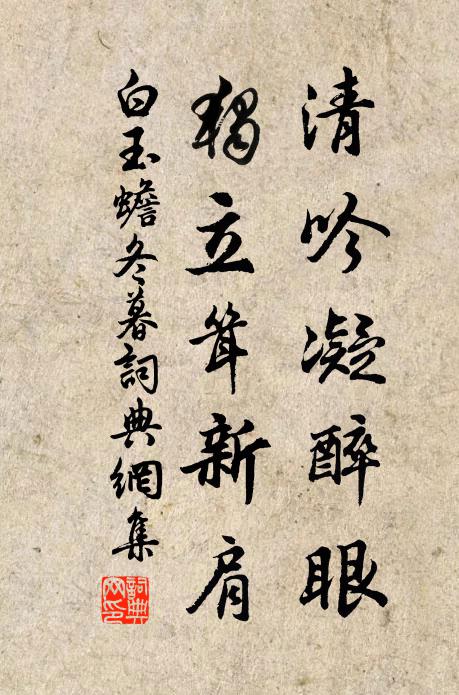 清吟凝醉眼
獨立聳新肩
白玉蟾冬暮詞典網集
詞典網印